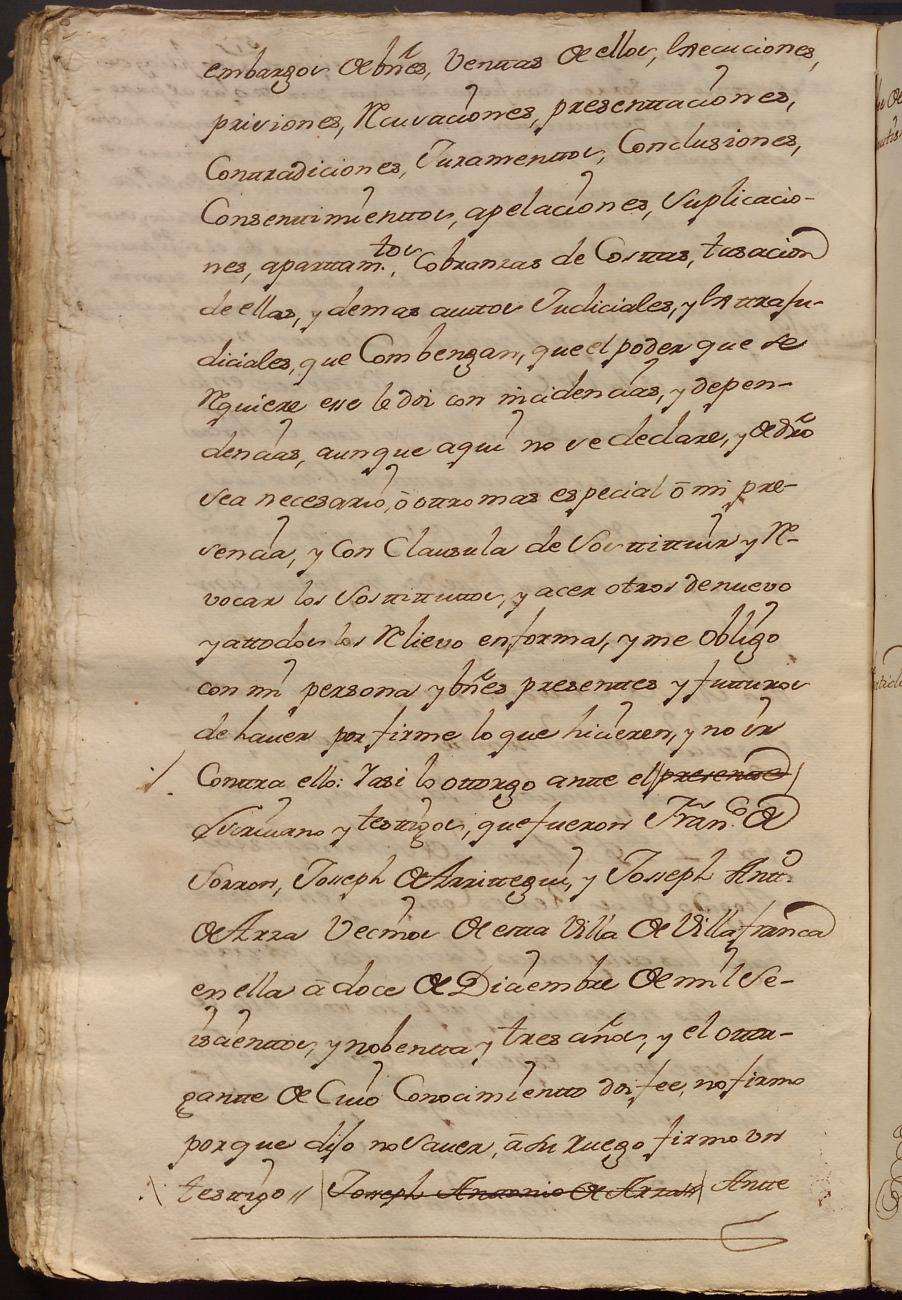 embargos de bn̄es, Venttas de ellos, Execuciones,
prisiones, Recusaciones, presenttaciones,
Conttradiciones, Juramenttos, Conclusiones,
Consenttimienttos, apelaciones, Suplicacio-
nes, aparttam.tos, Cobranzas de Costtas, tasacion
de ellas, y demas auttos Judiciales, y Exttraju-
diciales, que Combengan, que el poder que se
Requiere ese le doi con incidencias, y depen-
dencias, aunque aqui no se declare, y de dr̄o
sea necesario, ō ottro mas especial ō mi pre-
sencia, y Con Clausula de Sosttittuir y Re-
vocar los Sosttittuttos, y acer otros de nuevo
y attodos los Relievo en forma, y me obligo
con mi persona y bn̄es presenttes y futturos
de haver por firme lo que hicieren, y no ir
Conttra ello: Y asi lo ottorgo antte el (presentte)
Escrivano y testtigos, que fueron Fran.co de
Sorron, Joseph de Arrittegui, y Joseph Antt.o
de Arza Vecinos de estta Villa de Villafranca
en ella ā doce de Diciembre de mil Se-
iscienttos, y nobentta y tres años, y el ottor-
gantte de Cuio Conocimientto doi fee, no firmo
porque dijo no Saver, ā su ruego firmo un
testtigo // (Joseph Antonio de Arza //) Antte